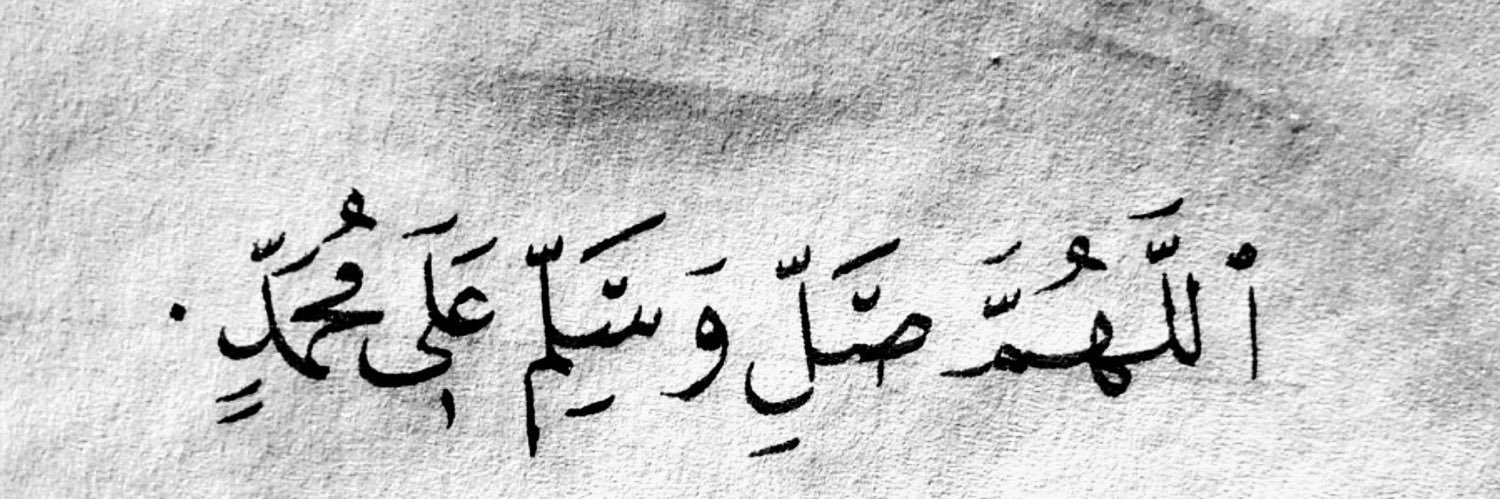 ٱللَّهُمَّ صَلِّ وَسَلِّمْ عَلَى مُحَمَّدٍ.